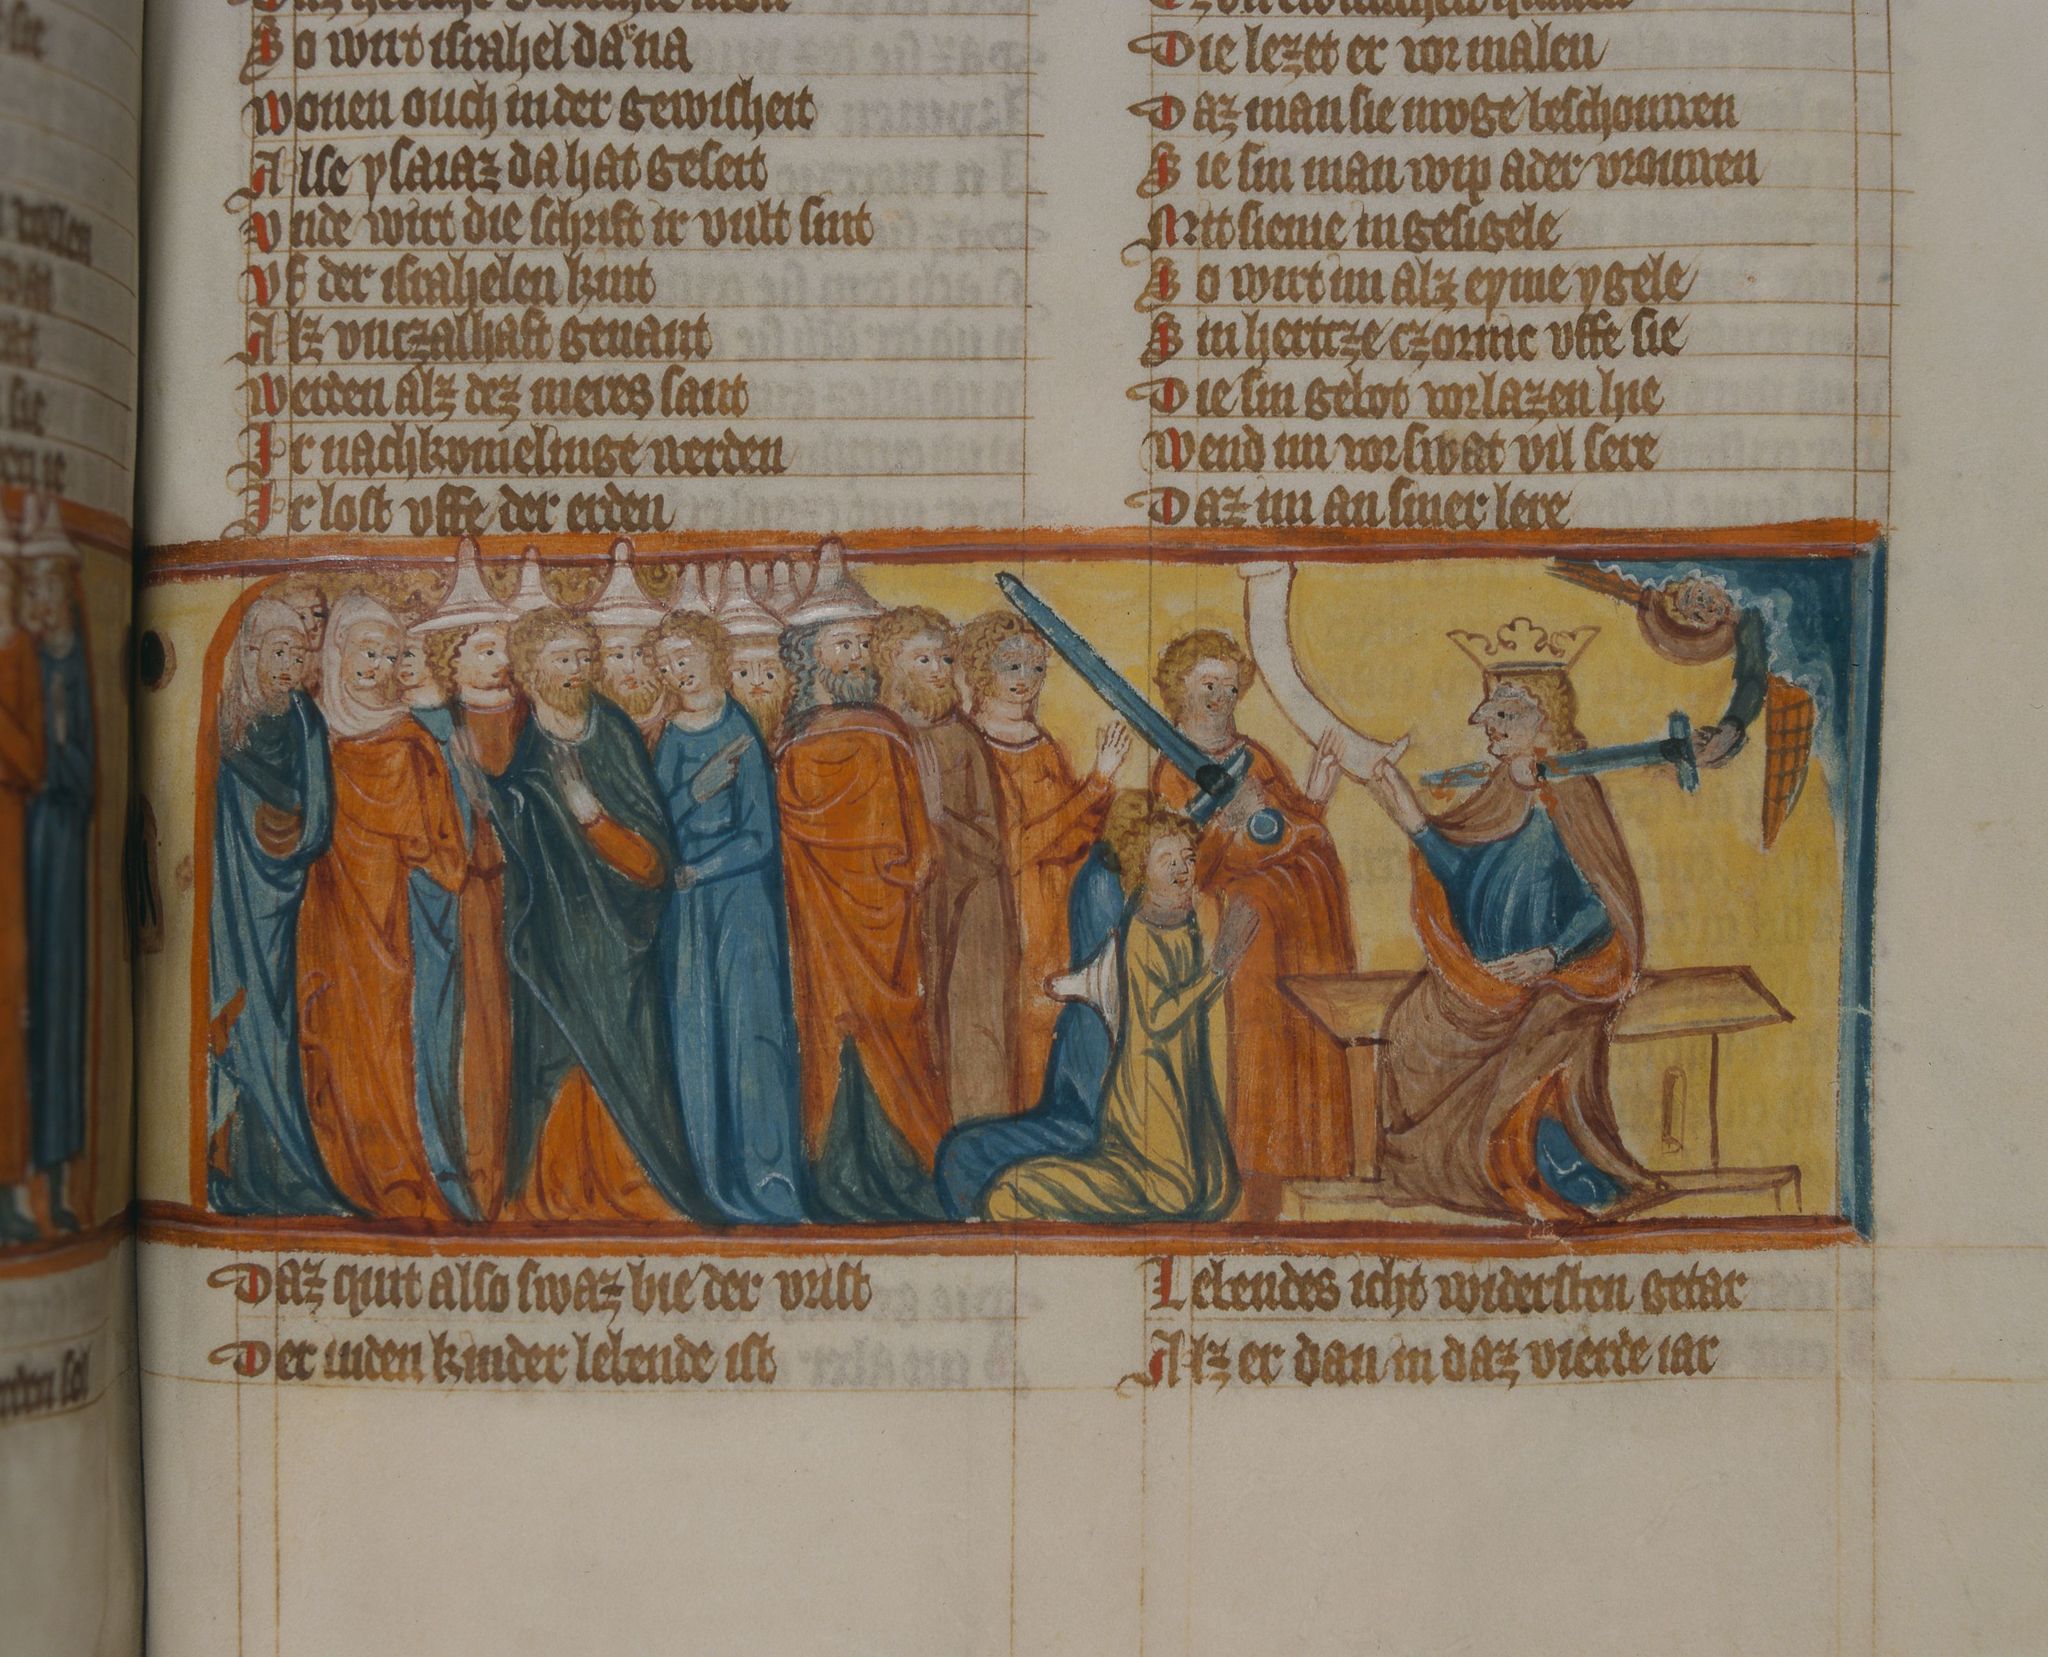 So wirt israhel dar na
wonen ouch in der gewisheit
Alse ysaiaz da hat geseit
vnde wirt die schrift ir vult sint
vf der israhelen kint
Alz vnczalhaft genant
werden alz dez meres sant
Ir nachkomelinge werden
Ir lost vffe der erden
Daz quit also swaz bie der vrist
Der iuden kinder lebende ist
Die lezet er vor malen
Daz man sie moge beschouwen
Sie sin man wip ader vrouwen
Mit sieme ingesigele
So wirt im alz eyme ygele
Sin hertcze czornic vffe sie
Die sin gebot vorlazen hie
wend im vorswat vil sere
Daz im an siner lere
Lebendes icht widersten getar
Alz er dan in daz vierde iar